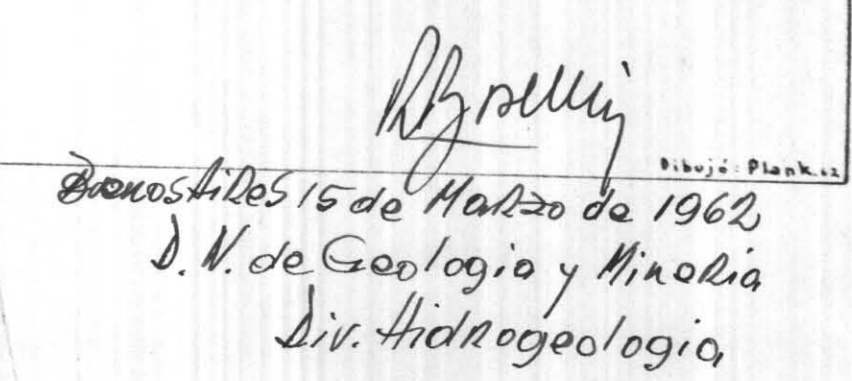 Dibujó: Plank.62
Buenos Aires 15 de Marzo de 1962
D. N. de Geologia y Mineria
Div. Hidrogeologia